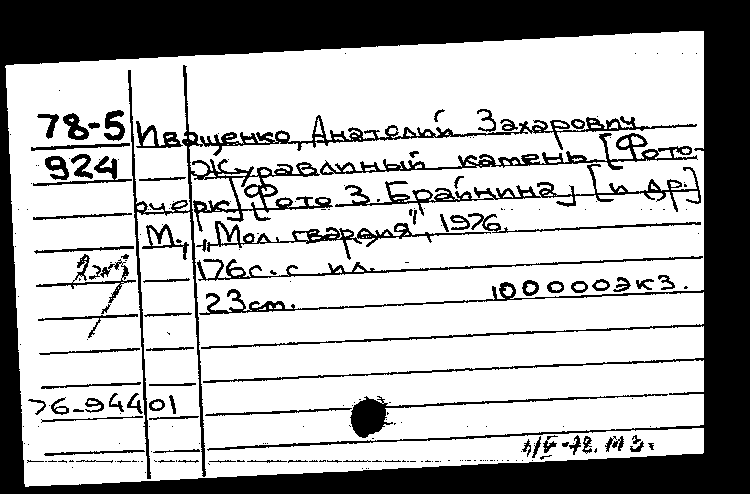 78-5 Иващенко, Анатолий Захарович.
924 Журавлиный камень. [Фото-
очерк] [Фото З. Брайнина] [и др.]
М., "Мол. гвардия", 1976.
176с. с ил.
23 см. 100000 экз.
76-944 01